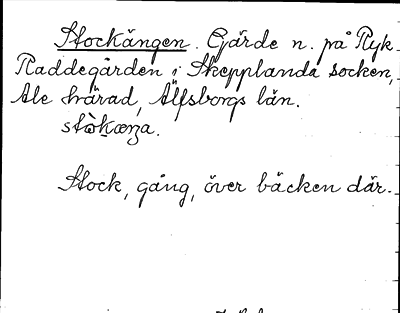 Stockängen. Gärde n. på Ryk
Raddegården i Skepplanda socken,
Ale härad, Älfsborgs län.
Stock, gång, över bäcken där.